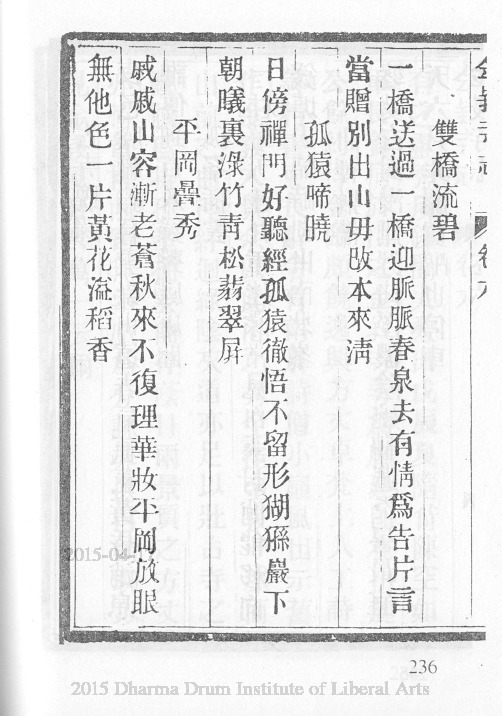 雙橋流碧
一橋送過一橋迎脈脈春泉去有情爲告片言
當贈別出山毋改本來淸
孤猿啼曉
日傍禪門好聽經孤猿徹悟不留形猢猻巖下
朝曦裏淥竹靑松翡翠屛
平岡疊秀
戚戚山容漸老蒼秋來不復理華妝平岡放眼
無他色一片黃花溢稻香
2015-04-
236
2015 Dharma Drum Institute of Liberal Arts